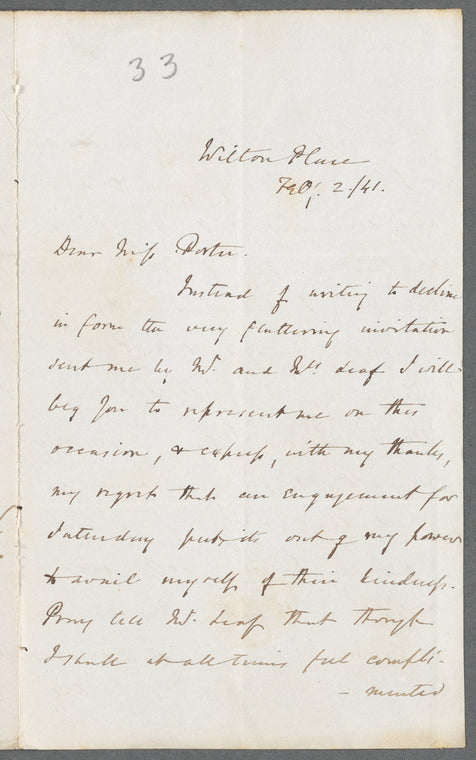 33
Wilton Place
Feby. 2./41.
Dear Miss Porter.
Instead of writing to decline
in form the very flattering invitation
sent me by Mr. and Mrs. Leaf I will
beg you to represent me on this
occasion, & express, with my thanks,
my regrets that an engagement for
Saturday puts it out of my power
to avail myself of their kindness.
Pray tell Mr. Leaf that though
I shall at all times feel compli-
- mented